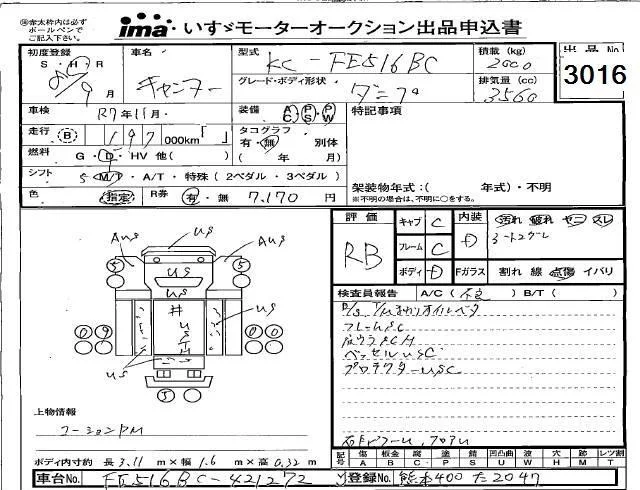 ※赤太枠内は必ずボールペンでご記入下さい。
ima いすゞモーターオークション出品申込書
初度登録
S・H・R
9月
車名
キャンター
型式
KC-FE516BC
積載 (kg)
2000
出品No.
3016
グレード・ボディ形状
ダンプ
排気量 (cc)
3560
車検
R7年11月
装備
AC PS PW
特記事項
走行
B
197 000km「 」
タコグラフ
有・無 別体
( 年 月)
燃料
G・D・HV 他( )
シフト
5 M/T・A/T・特殊 (2ペダル・3ペダル)
架装物年式:( 年式)・不明
※不明の場合は、不明に○をする。
色
(指定)
R券
有・無 7,170 円
評価
RB
キャブ C
フレーム C
ボディ D
内装 D
汚れ 破れ ヤニ スレ
Fガラス 割れ 線 点傷 イバリ
検査員報告 A/C (不良) B/T ( )
フレームSC
ベッセルUSC
プロテクターUSC
AUS
US
AUS
5
US
5
US
US
0 9
0 0
US
5
上物情報
コーションPM
ボディ内寸約 長 3.11 m×幅 1.6 m×高 0.32 m
記号 傷 A 板金 B 腐 C 塗 P 錆 S 凹凸曲 U 波 W 穴 H 跡 M レツ割 T
車台No. FE516BC-421272
登録No. 熊本400た2047